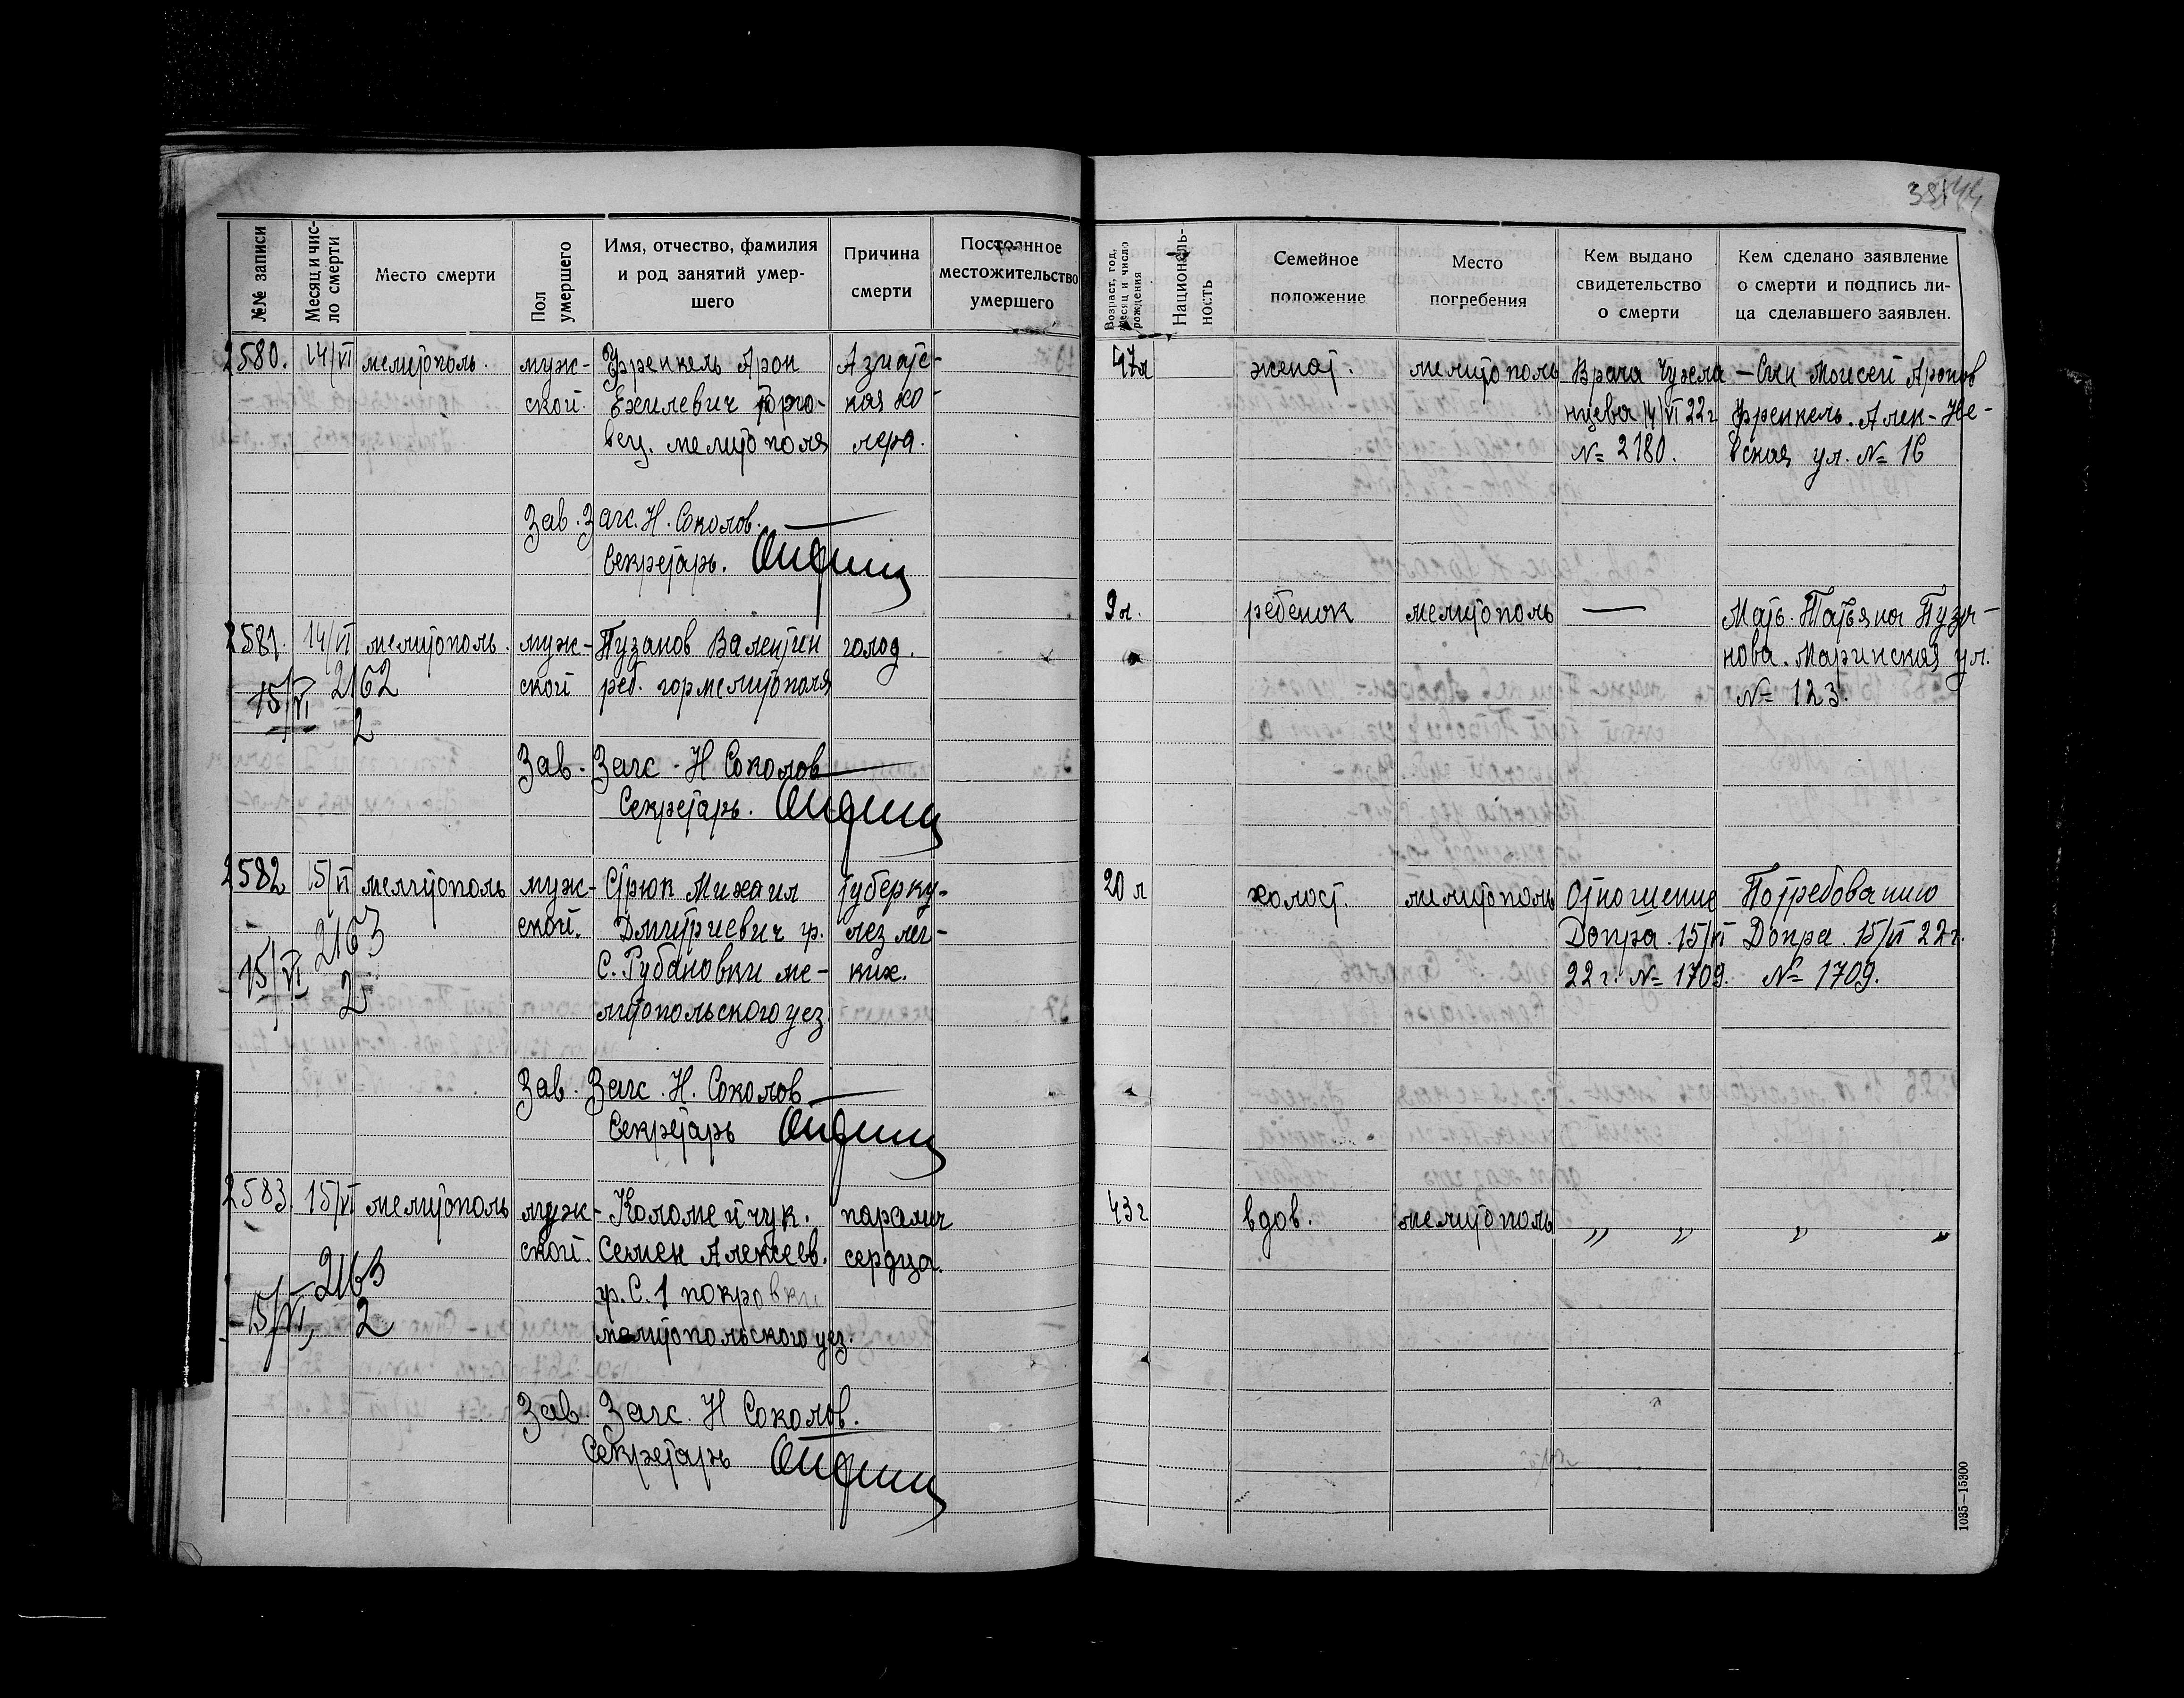 №№ записи
Месяц и чис-
ло смерти
Место смерти
Пол
умершего
Имя, отчество, фамилия
и род занятий умер-
шего
Причина
смерти
Постоянное
местожительство
умершего
Возраст, год,
месяц и число
рождения
Националь-
ность
Семейное
положение
Место
погребения
Кем выдано
свидетельство
о смерти
Кем сделано заявление
о смерти и подпись ли-
ца сделавшего заявлен.
2580. 14/VI мелитополь. муж- Френкель Арон Азиатс- 47л женат. мелитополь Врача Чужела — Сын Моисей Аронов
ской. Ехилевич торго- кая хо- нцева 14/VI 22г Френкель. Алек-Не-
вец. мелитополя лера. №= 2180. вская ул. №= 16
Зав. Загс. Н. Соколов.
Секретарь.
2581. 14/VI мелитополь. муж- Пузанов Валентин голод. 9л. ребенок мелитополь — Мать. Татьяна Пуза-
ской реб. гор мелитополя нова. Маринская ул.
15/VI 2162 №= 123.
2
Зав. Загс. Н Соколов
Секретарь.
2582 15/VI мелитополь муж- Стрюк Михаил туберку- 20 л холост. мелитополь Отношение По требованию
ской. Дмитриевич гр. лез лег- Допра. 15/VI Допра. 15/VI 22г.
15/VI 2163 С. Рубановки ме- ких. 22г. №= 1709. №= 1709.
2
литопольского уез.
Зав. Загс. Н. Соколов
Секретарь
2583. 15/VI мелитополь муж- Коломейчук. паралич 43г вдов. мелитополь „ „ „ „
ской. Семен Алексеев. сердца.
2163 гр. С. 1 покровки
15/VI, 2 мелитопольского уез.
Зав. Загс. Н Соколов.
Секретарь
1035—15300